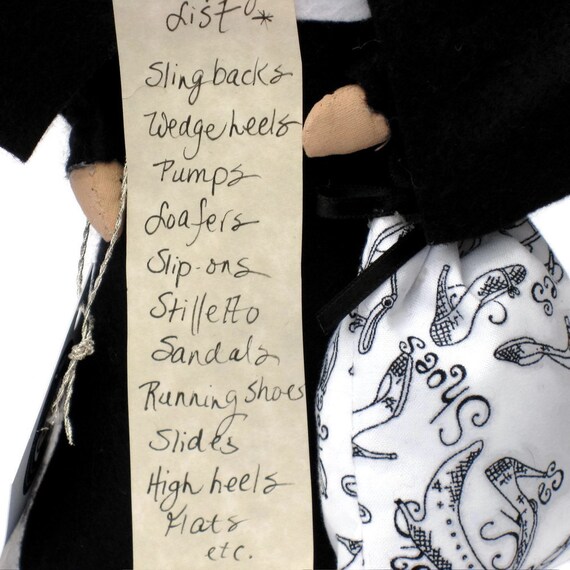 List *
Slingbacks
Wedge heels
Pumps
Loafers
Slip-ons
Stilletto
Sandals
Running Shoes
Slides
High heels
Flats
etc.
Shoes